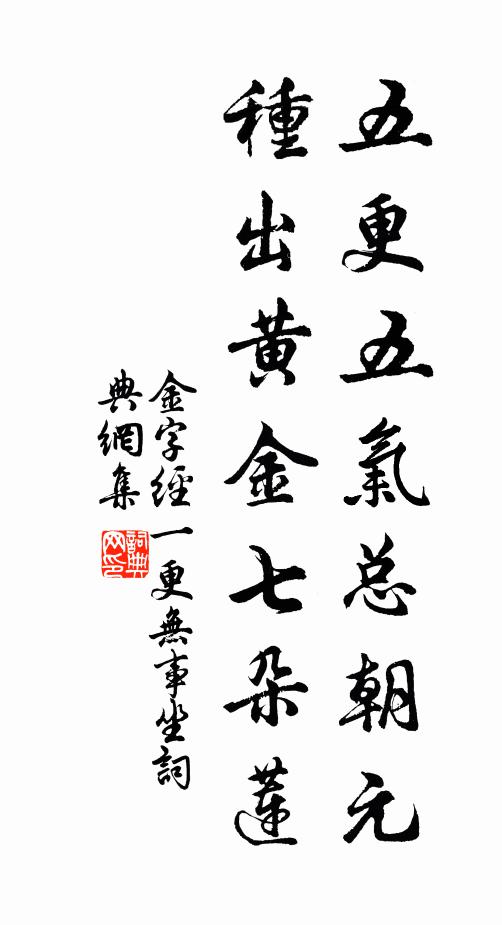 五更五氣总朝元
種出黄金七朵蓮
金字經一更無事坐詞
典網集
詞典网印